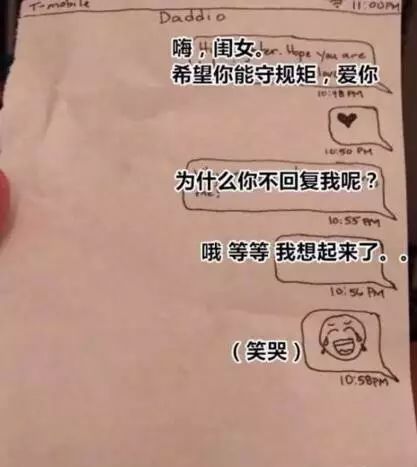 T-mobile 11:00PM
Daddio
嗨，闺女。
Hope you are
希望你能守规矩，爱你
10:48 PM
10:50 PM
为什么你不回复我呢？
me?
10:55 PM
哦 等等 我想起来了。。
10:56 PM
（笑哭）
10:58PM